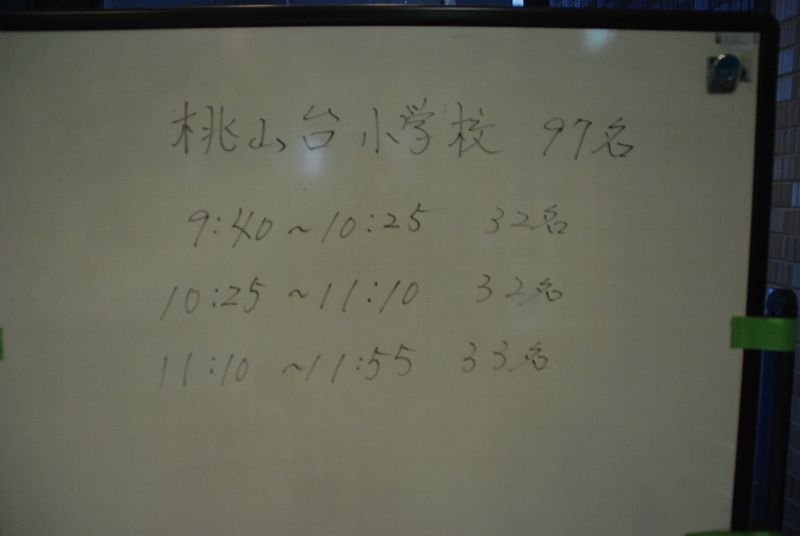 桃山台小学校 97名
9:40～10:25 32名
10:25～11:10 32名
11:10～11:55 33名